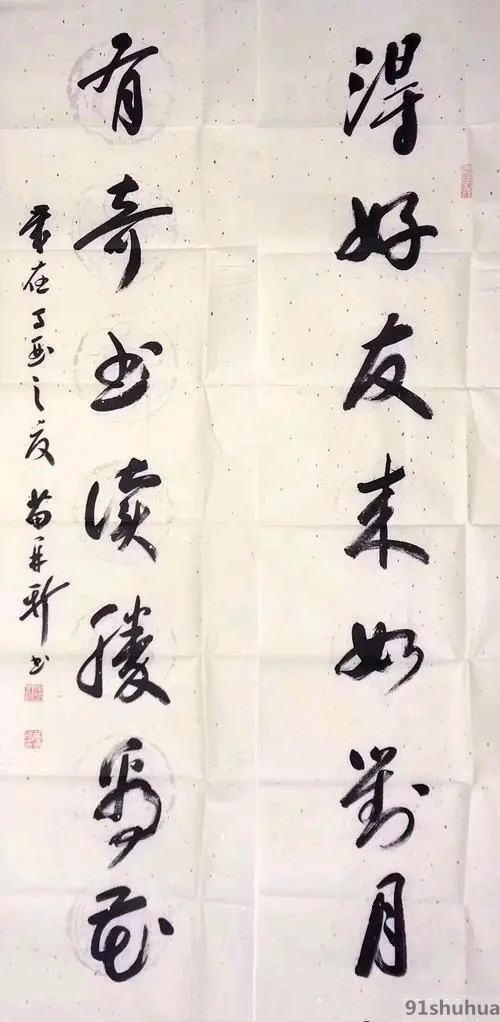 得好友来如對月
有奇书读勝看花
歲在丁酉之夏 苗再新书
91shuhua